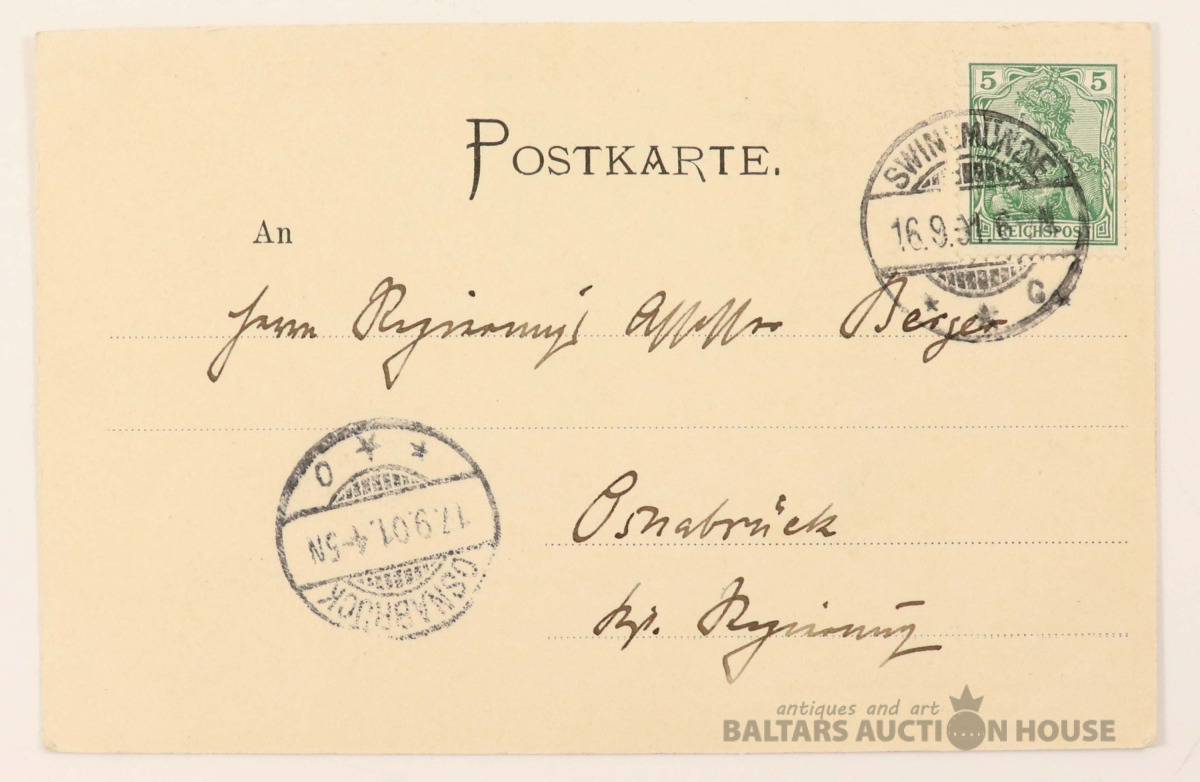 5 5
REICHSPOST
POSTKARTE.
SWINEMÜNDE
16.9.01.6-7N
* * C *
An
Herrn Regierungs Assessor Berger
* * O
17.9.01.4-5N
OSNABRÜCK
Osnabrück
Kgl. Regierung
antiques and art
BALTARS AUCTION HOUSE